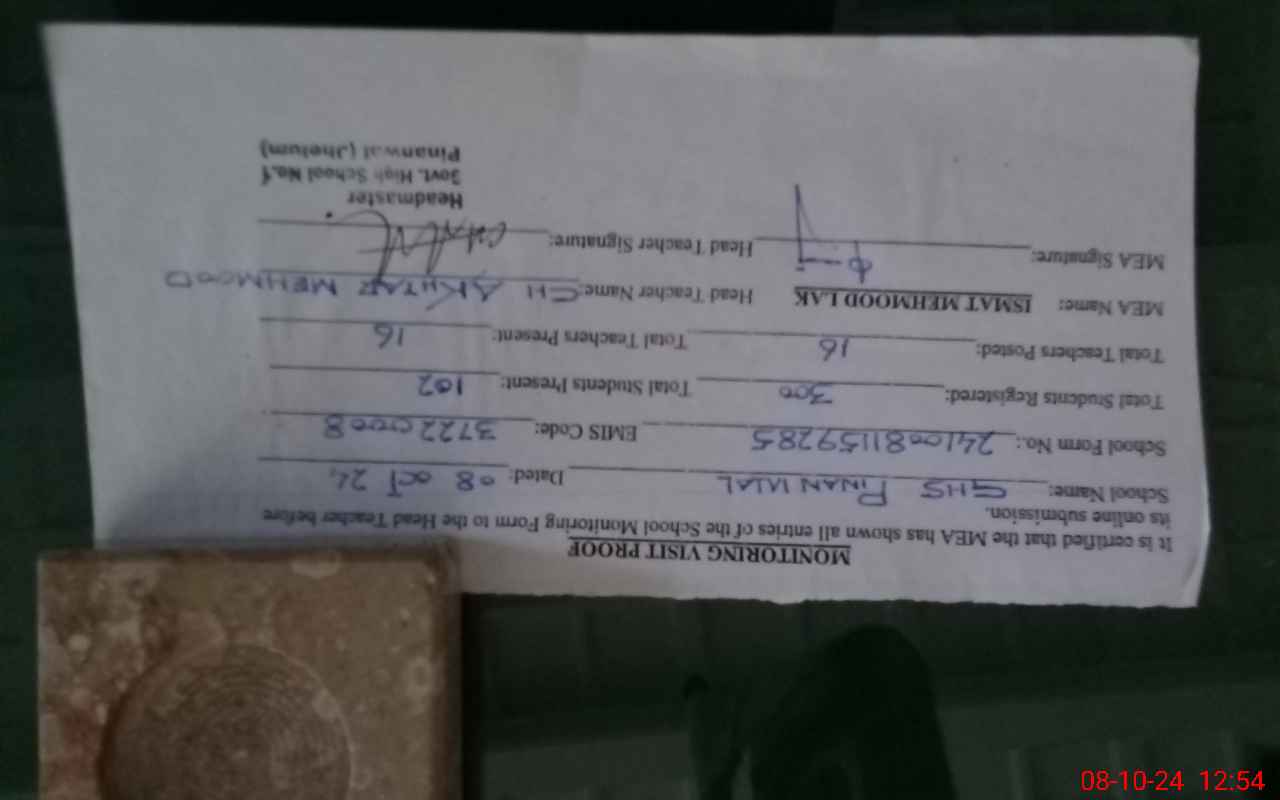 MONITORING VISIT PROOF
It is certified that the MEA has shown all entries of the School Monitoring Form to the Head Teacher before
its online submission.
School Name: GHS PINANWAL Dated: 08 OCT 24
School Form No.: 2410081159285 EMIS Code: 37220008
Total Students Registered: 300 Total Students Present: 102
Total Teachers Posted: 16 Total Teachers Present: 16
MEA Name: ISMAT MEHMOOD LAK Head Teacher Name: CH AKHTAR MEHMOOD
MEA Signature: Head Teacher Signature:
Headmaster
Govt. High School No.1
Pinanwal (Jhelum)
08-10-24 12:54